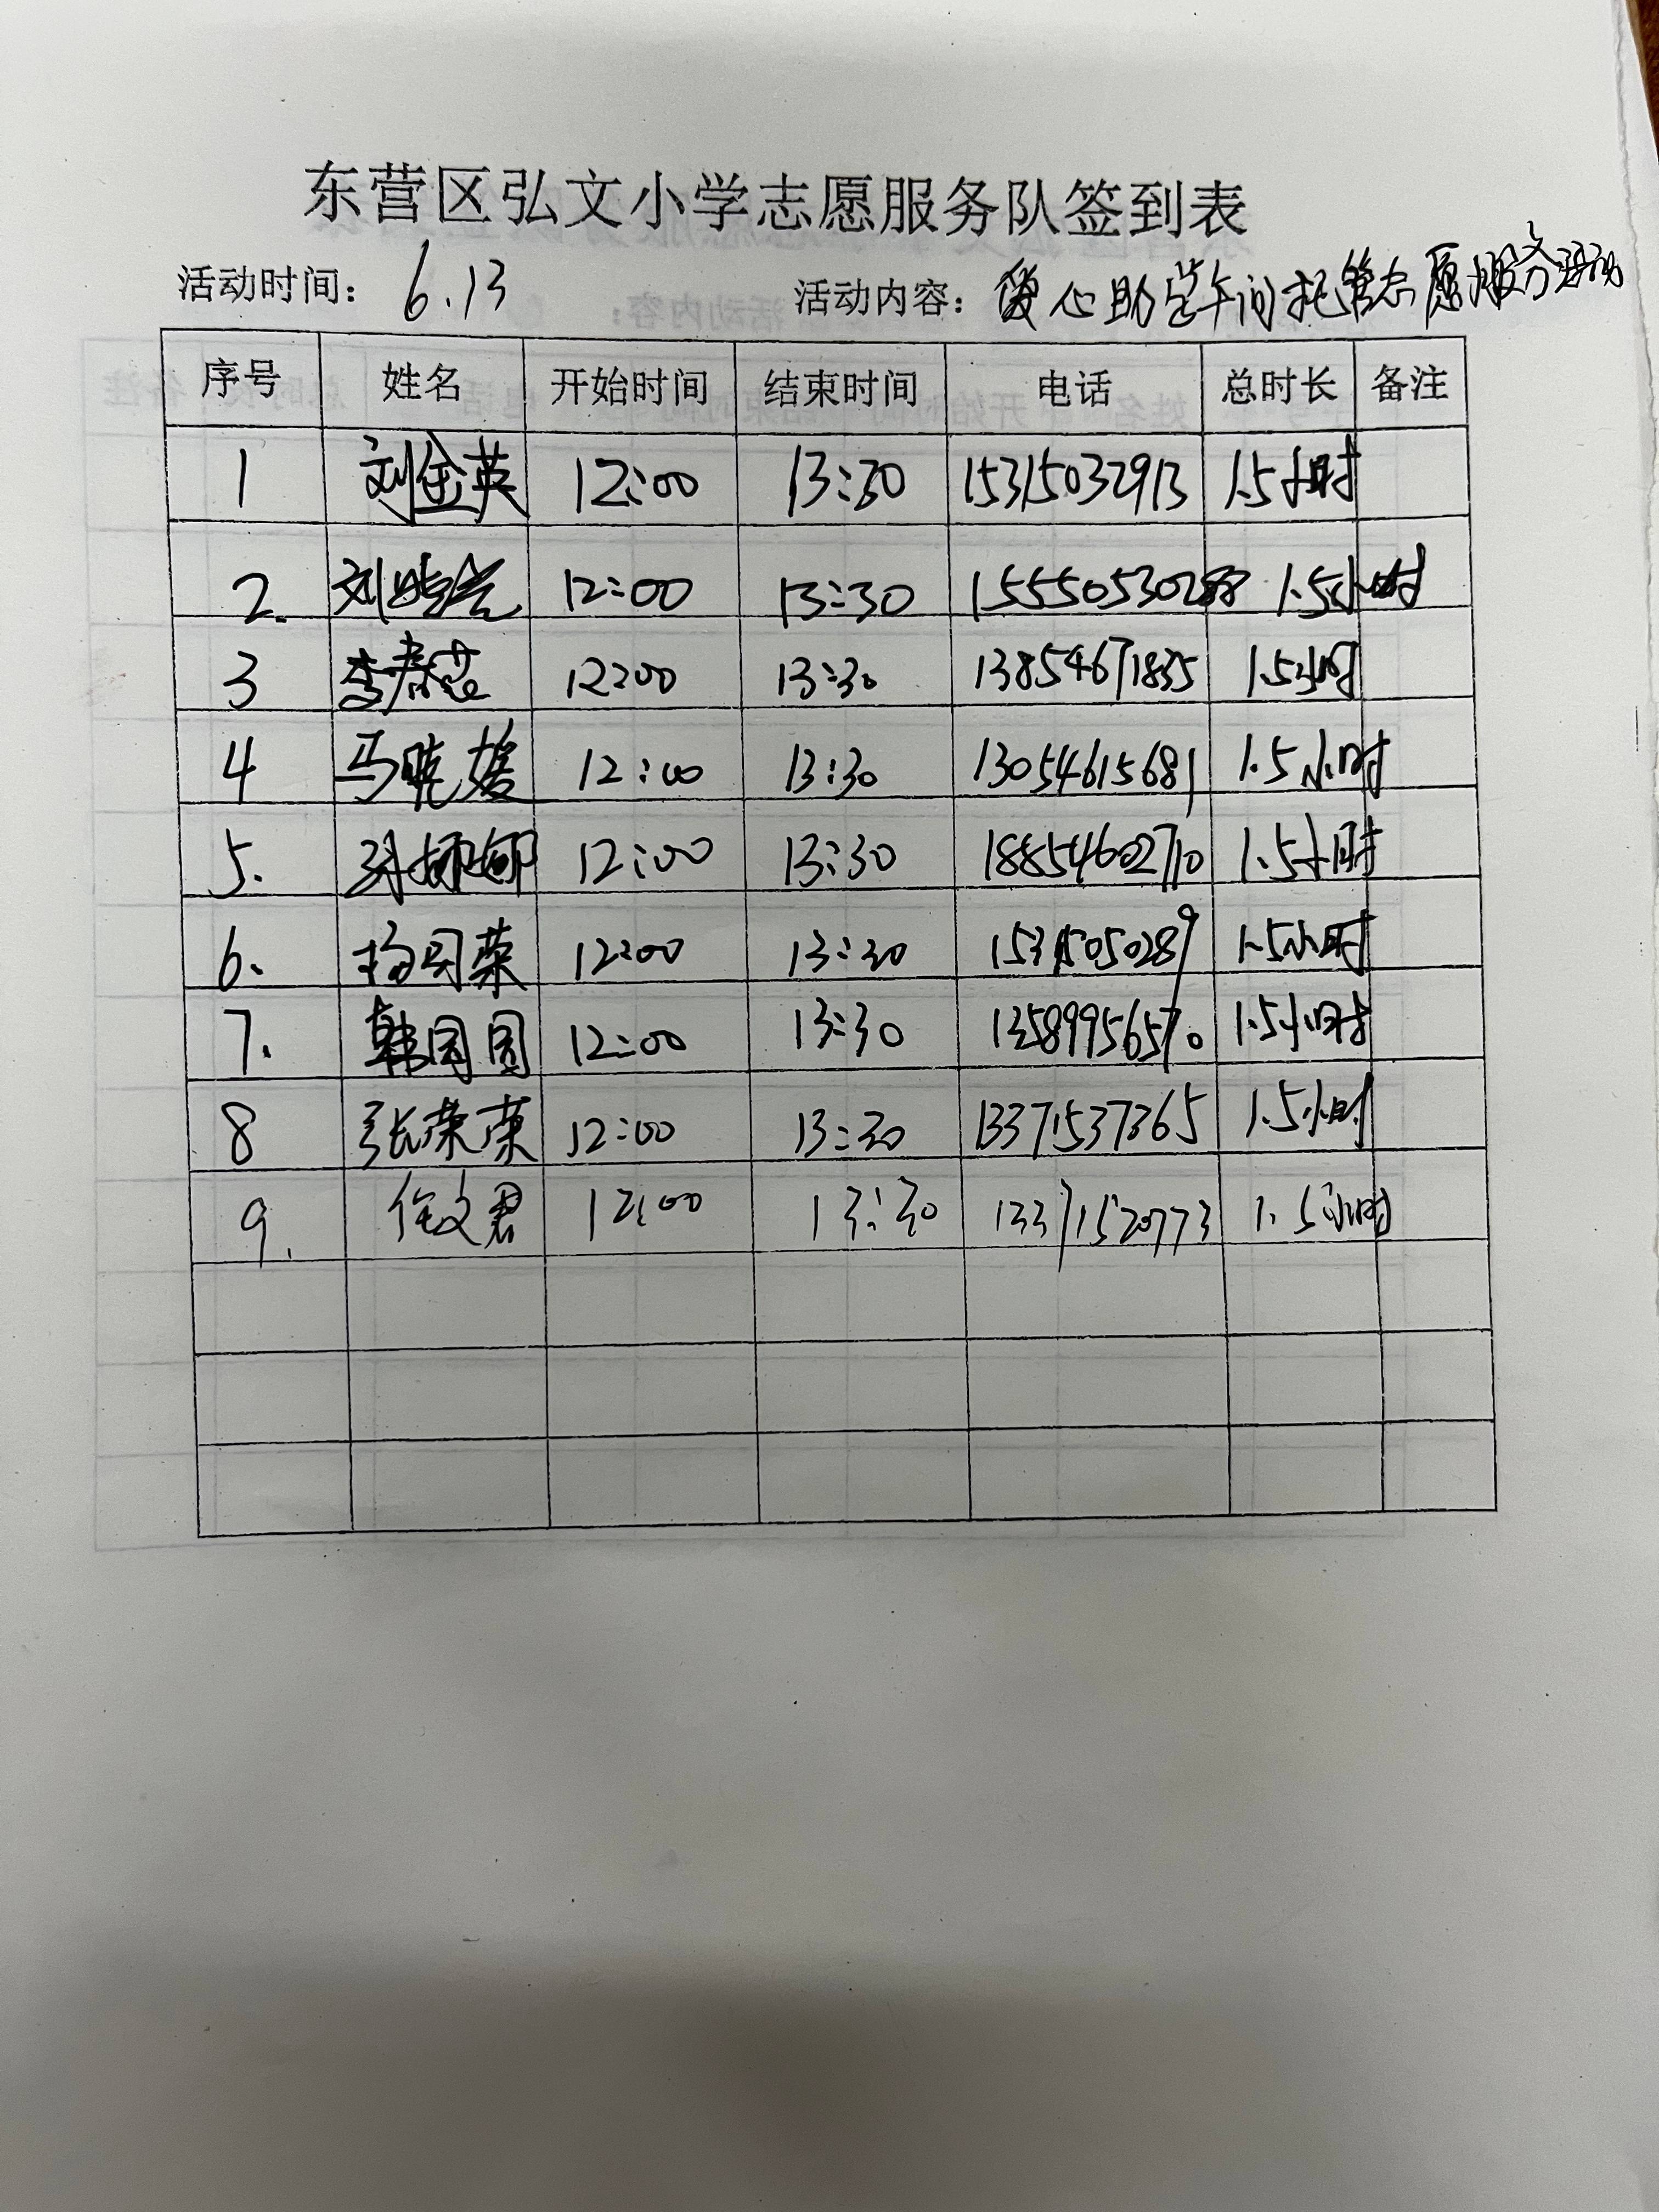 东营区弘文小学志愿服务队签到表
活动时间： 6.13 活动内容： 暖心助学午间托管志愿服务活动
序号 姓名 开始时间 结束时间 电话 总时长 备注
1 刘金英 12:00 13:30 15315032913 1.5小时
2. 刘 12:00 13:30 1.5小时
3 李春蕊 12:00 13:30 13854671835 1.5小时
4 马晓媛 12:00 13:30 13054615681 1.5小时
5. 孙娜娜 12:00 13:30 18854602710 1.5小时
6. 杨冈荣 12:00 13:30 15315050289 1.5小时
7. 韩园圆 12:00 13:30 13589956570 1.5小时
8 张荣荣 12:00 13:30 13371537365 1.5小时
9. 任文君 12:00 13:30 13371520773 1.5小时